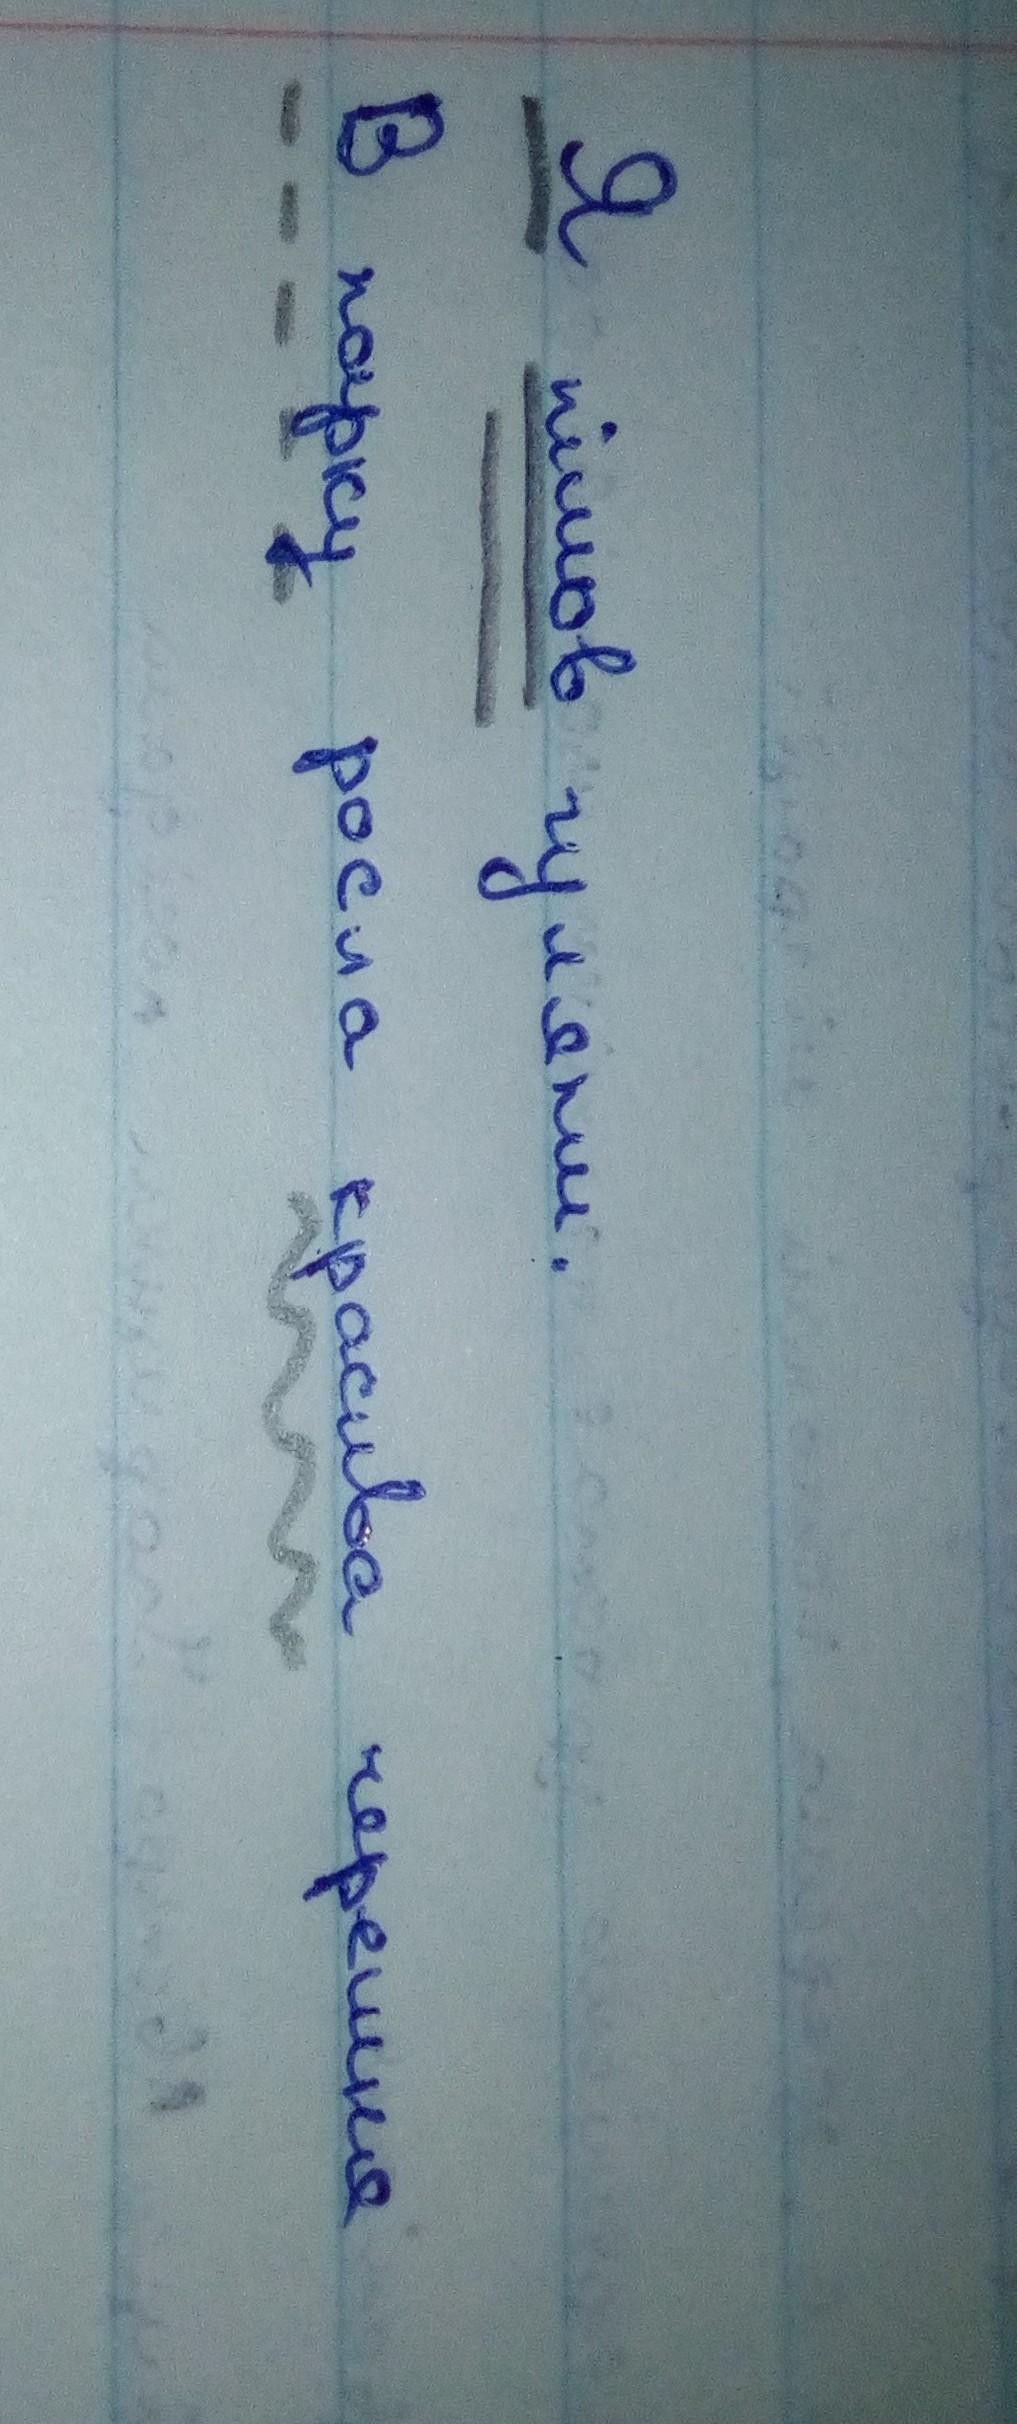 Я пішов гуляти.
В парку росла красива черешня